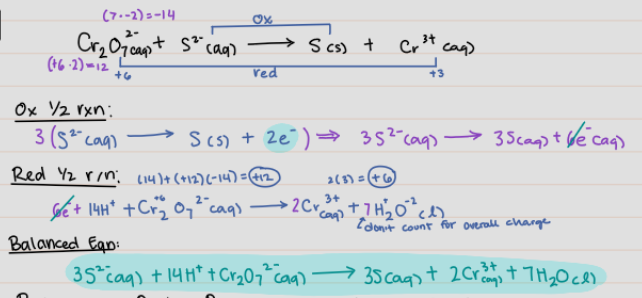 (7·-2)=-14
ox
Cr₂O₇²⁻(aq) + S²⁻(aq) ⟶ S(s) + Cr³⁺(aq)
(+6·2)=12
+6 red +3
Ox ½ rxn:
3(S²⁻(aq) ⟶ S(s) + 2e⁻) ⇒ 3S²⁻(aq) ⟶ 3S(aq) + 6e⁻(aq)
Red ½ rxn: (14)+(+12)(-14)=+12 2(3)=+6
6e⁻ + 14H⁺ + Cr₂⁺⁶O₇²⁻(aq) ⟶ 2Cr³⁺(aq) + 7H₂⁺O⁻²(l)
don't count for overall charge
Balanced Eqn:
3S²⁻(aq) + 14H⁺ + Cr₂O₇²⁻(aq) ⟶ 3S(aq) + 2Cr³⁺(aq) + 7H₂O(l)